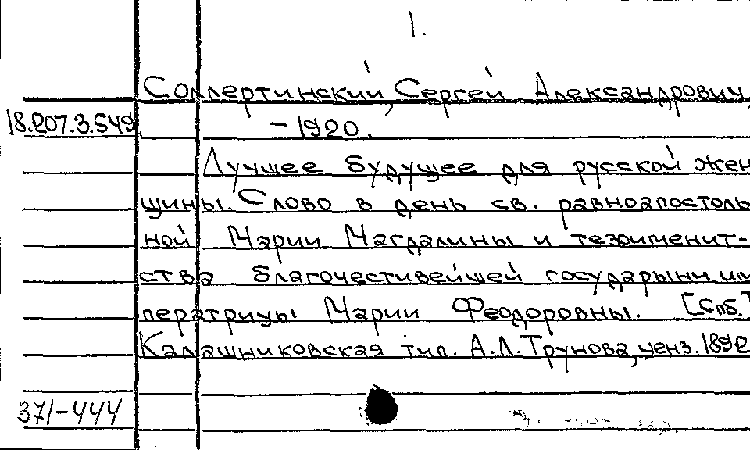 1.
Соллертинский, Сергей Александрович
18.207.3.549
-1920.
Лучшее будущее для русской жен
щины. Слово в день св. равноапостоль
ной Марии Магдалины и тезоименит-
ства благочестивейшей государыни им
ператрицы Марии Феодоровны. [Спб.]
Калашниковская тип. А.Л. Трунова, ценз. 1892
371-444